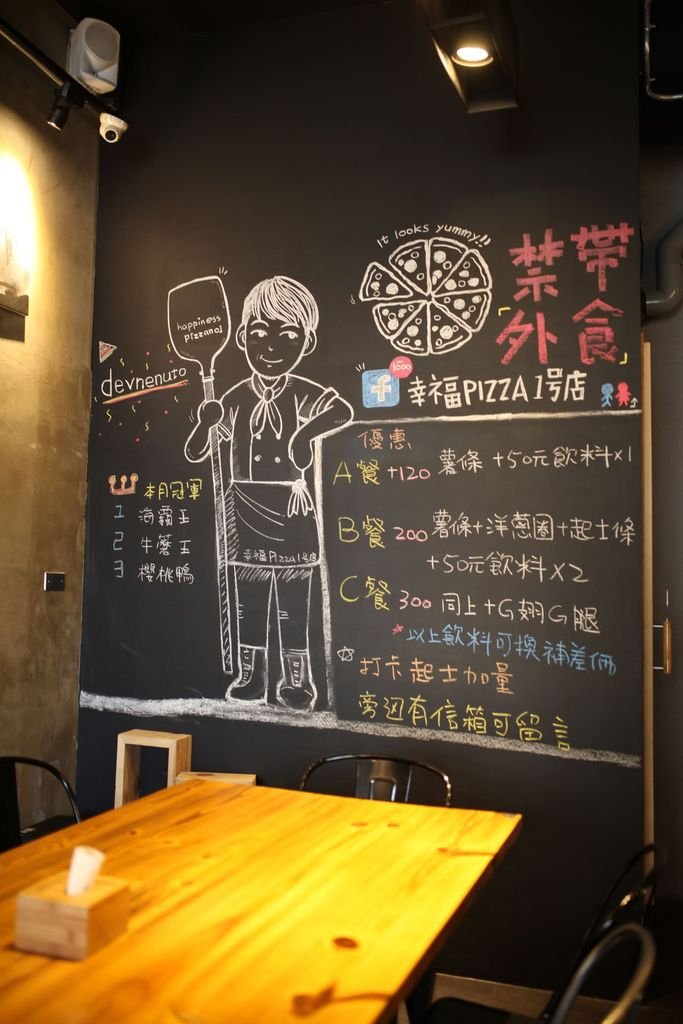 It looks yummy!!
禁帶
外食
happiness
pizzano1
1000
f
幸福PIZZA 1号店
devnenuto
優惠
A餐 +120 薯條 +50元飲料x1
本月冠軍
1 海霸王
2 牛蘑王
3 櫻桃鴨
B餐 200 薯條+洋蔥圈+起士條
+50元飲料X2
幸福Pizza1号店
C餐 300 同上+G翅G腿
*以上飲料可換補差価
☆打卡起士加量
旁边有信箱可留言